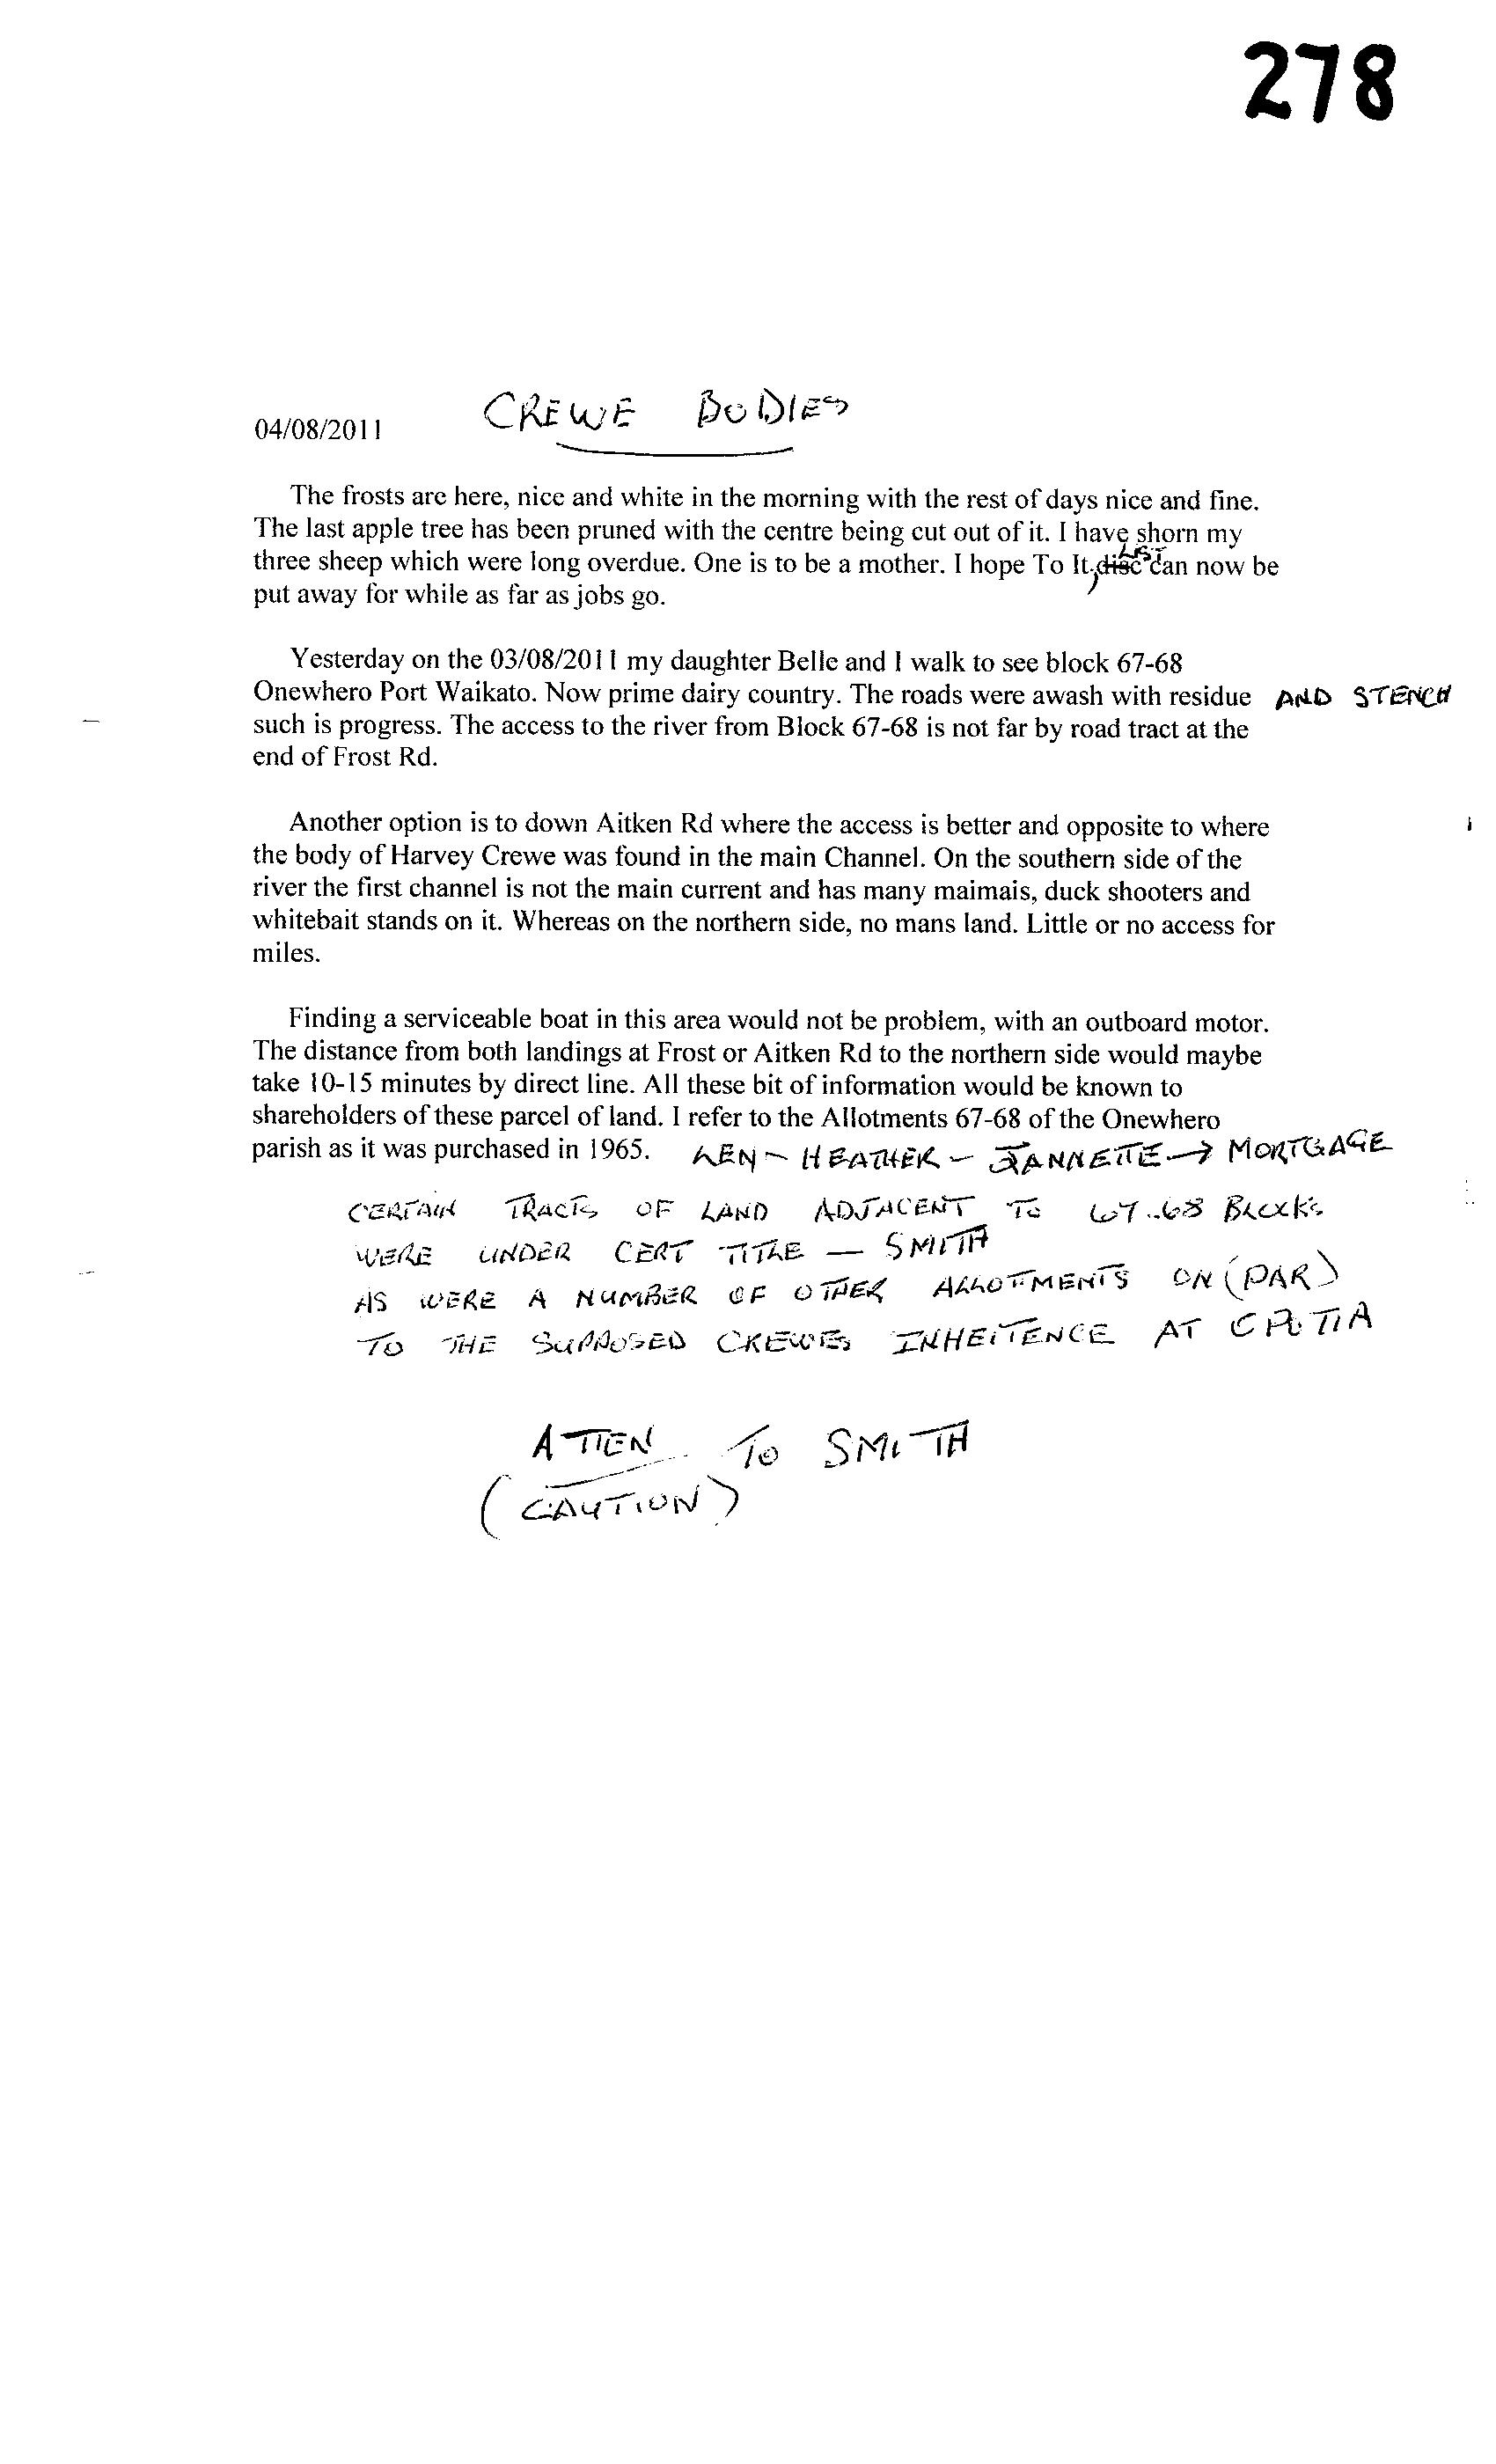 278
04/08/2011 CREWE BODIES
The frosts are here, nice and white in the morning with the rest of days nice and fine.
The last apple tree has been pruned with the centre being cut out of it. I have shorn my
three sheep which were long overdue. One is to be a mother. I hope To It, disc LIST can now be
put away for while as far as jobs go.
Yesterday on the 03/08/2011 my daughter Belle and I walk to see block 67-68
Onewhero Port Waikato. Now prime dairy country. The roads were awash with residue AND STENCH
such is progress. The access to the river from Block 67-68 is not far by road tract at the
end of Frost Rd.
Another option is to down Aitken Rd where the access is better and opposite to where
the body of Harvey Crewe was found in the main Channel. On the southern side of the
river the first channel is not the main current and has many maimais, duck shooters and
whitebait stands on it. Whereas on the northern side, no mans land. Little or no access for
miles.
Finding a serviceable boat in this area would not be problem, with an outboard motor.
The distance from both landings at Frost or Aitken Rd to the northern side would maybe
take 10-15 minutes by direct line. All these bit of information would be known to
shareholders of these parcel of land. I refer to the Allotments 67-68 of the Onewhero
parish as it was purchased in 1965. LEN - HEATHER - JANNETTE → MORTGAGE
CERTAIN TRACTS OF LAND ADJACENT TO 67..68 BLOCKS
WERE UNDER CERT TITLE — SMITH
AS WERE A NUMBER OF OTHER ALLOTMENTS ON (PAR)
TO THE SUPPOSED CREWES INHEITENCE AT
ATTEN TO SMITH
(CAUTION)